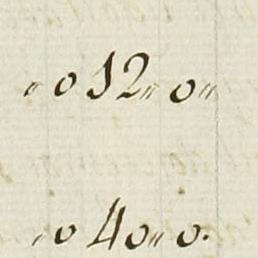 "012" 0"
"040" 0.